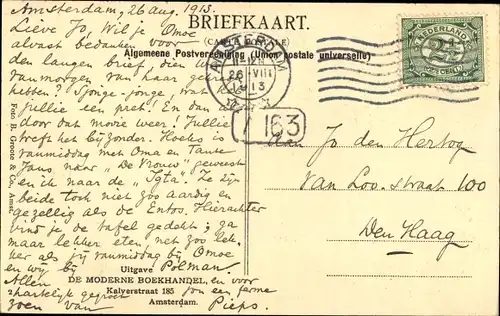 Amsterdam, 26 aug. 1913.
Lieve Jo, Wil je Omoe
alvast bedanken voor
den langen brief, dien we
vanmorgen van haar
hebben? Sjonge-jonge, wat
jullie een pret! En dan
door dat mooie weer! Jullie
treft het bijzonder. Hoeks is
vanmiddag met Oma en Tante
Jans naar "De Vrouw" geweest
en ik naar de
beide toch niet zoo aardig en
gezellig als de Entos. Hierachter
vind je de tafel gedekt; ga
maar lekker eten, net zoo lek-
ker als jij vanmiddag bij Omoe
en wij bij Polman.
Allen en voor
hartelijk gegroet jou een ferme
zoen van Pieps.
BRIEFKAART.
Algemeene Postvereeniging (Union postale universelle)
AMSTERDAM
26 VIII
13
NEDERLAND
2½
CENT
163
Aan Jo den Hertog
Van Loo-straat 100
Den Haag
Foto B. Groote & Co., Amst.
Uitgave
DE MODERNE BOEKHANDEL,
Kalverstraat 185
Amsterdam.